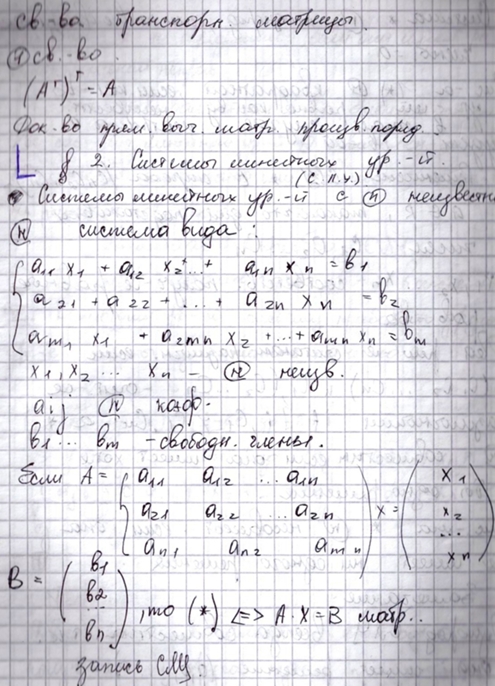 св.-ва транспорн. матрицы.
① св.-во.
(Aᵀ)ᵀ = A
Док-во прям. выч. матр. произв. поряд.
§ 2. Системы линейных ур.-й.
(С. Л. У.)
Системы линейных ур.-й с (n) неизвестн
(н) система вида:
a₁₁ x₁ + a₁₂ x₂ + ... + a₁ₙ xₙ = b₁
a₂₁ + a₂₂ + ... + a₂ₙ xₙ = b₂
aₘ₁ x₁ + a₂ₘₙ x₂ + ... + aₘₙ xₙ = bₘ
x₁, x₂ ... xₙ – (н) неизв.
aij (н) коэф.
b₁ ... bₘ - свободн. члены.
Если A = ( a₁₁ a₁₂ ... a₁ₙ ) x = ( x₁
a₂₁ a₂₂ ... a₂ₙ x₂
... 
aₙ₁ aₙ₂ aₘₙ xₙ )
B = ( b₁
b₂
...
bₙ ) , то (*) <=> A · X = B матр..
запись СЛУ.